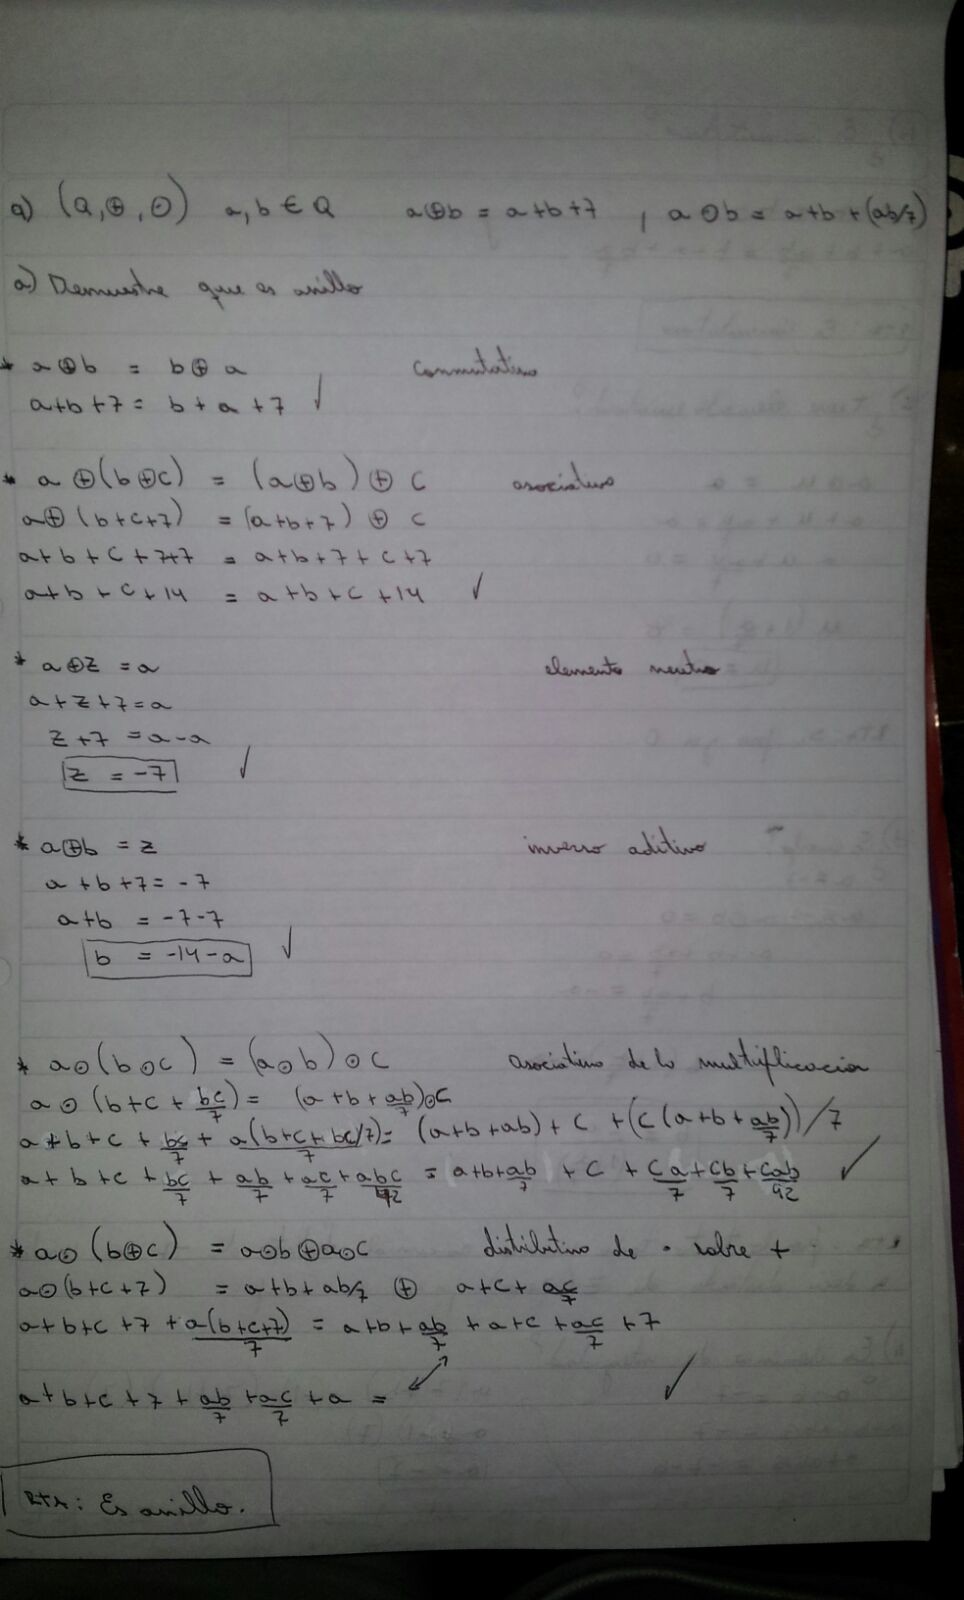 a) (Q, ⊕, ⊙) a, b ∈ Q a⊕b = a+b+7 , a⊙b = a+b+(ab/7)
a) Demuestre que es anillo
* a⊕b = b⊕a Conmutativo
a+b+7 = b+a+7 ✓
* a⊕(b⊕c) = (a⊕b)⊕c asociativo
a⊕(b+c+7) = (a+b+7)⊕c
a+b+c+7+7 = a+b+7+c+7
a+b+c+14 = a+b+c+14 ✓
* a⊕z = a elemento neutro
a+z+7=a
z+7 = a-a
z = -7 ✓
* a⊕b = z inverso aditivo
a+b+7=-7
a+b = -7-7
b = -14-a ✓
* a⊙(b⊙c) = (a⊙b)⊙c asociativo de la multiplicacion
a⊙(b+c+bc/7) = (a+b+ab/7)⊙c
a+b+c+bc/7+a(b+c+bc/7)/7 = (a+b+ab)+c+(c(a+b+ab/7))/7
a+b+c+bc/7+ab/7+ac/7+abc/42 = a+b+ab/7+c+ca/7+cb/7+cab/42 ✓
* a⊙(b⊕c) = a⊙b⊕a⊙c distributivo de · sobre +
a⊙(b+c+7) = a+b+ab/7 ⊕ a+c+ac/7
a+b+c+7+a(b+c+7)/7 = a+b+ab/7+a+c+ac/7+7
a+b+c+7+ab/7+ac/7+a = ↙↗ ✓
RTA: Es anillo.